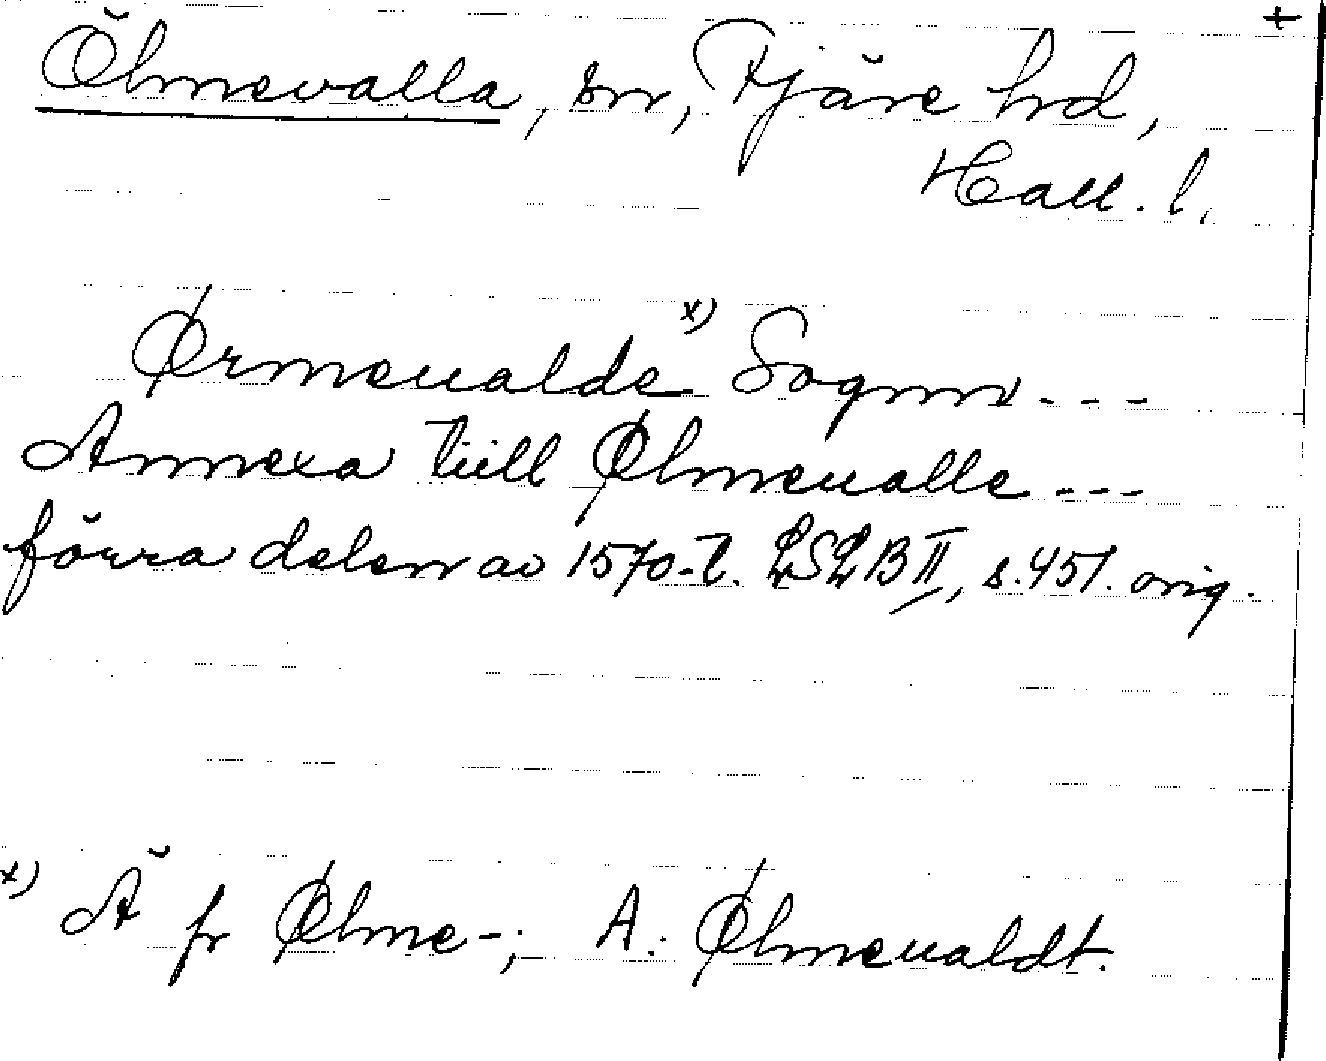 +
Ölmevalla, sn, Fjäre hd,
Hall. l.
Ørmeualde x) Sognn - - -
Annexa tiill Ølmeualle - - -
förra delen av 1570-t. LSLB II, s. 451. orig.
x) Ä fr Ølme-; A: Ølmeualdt.